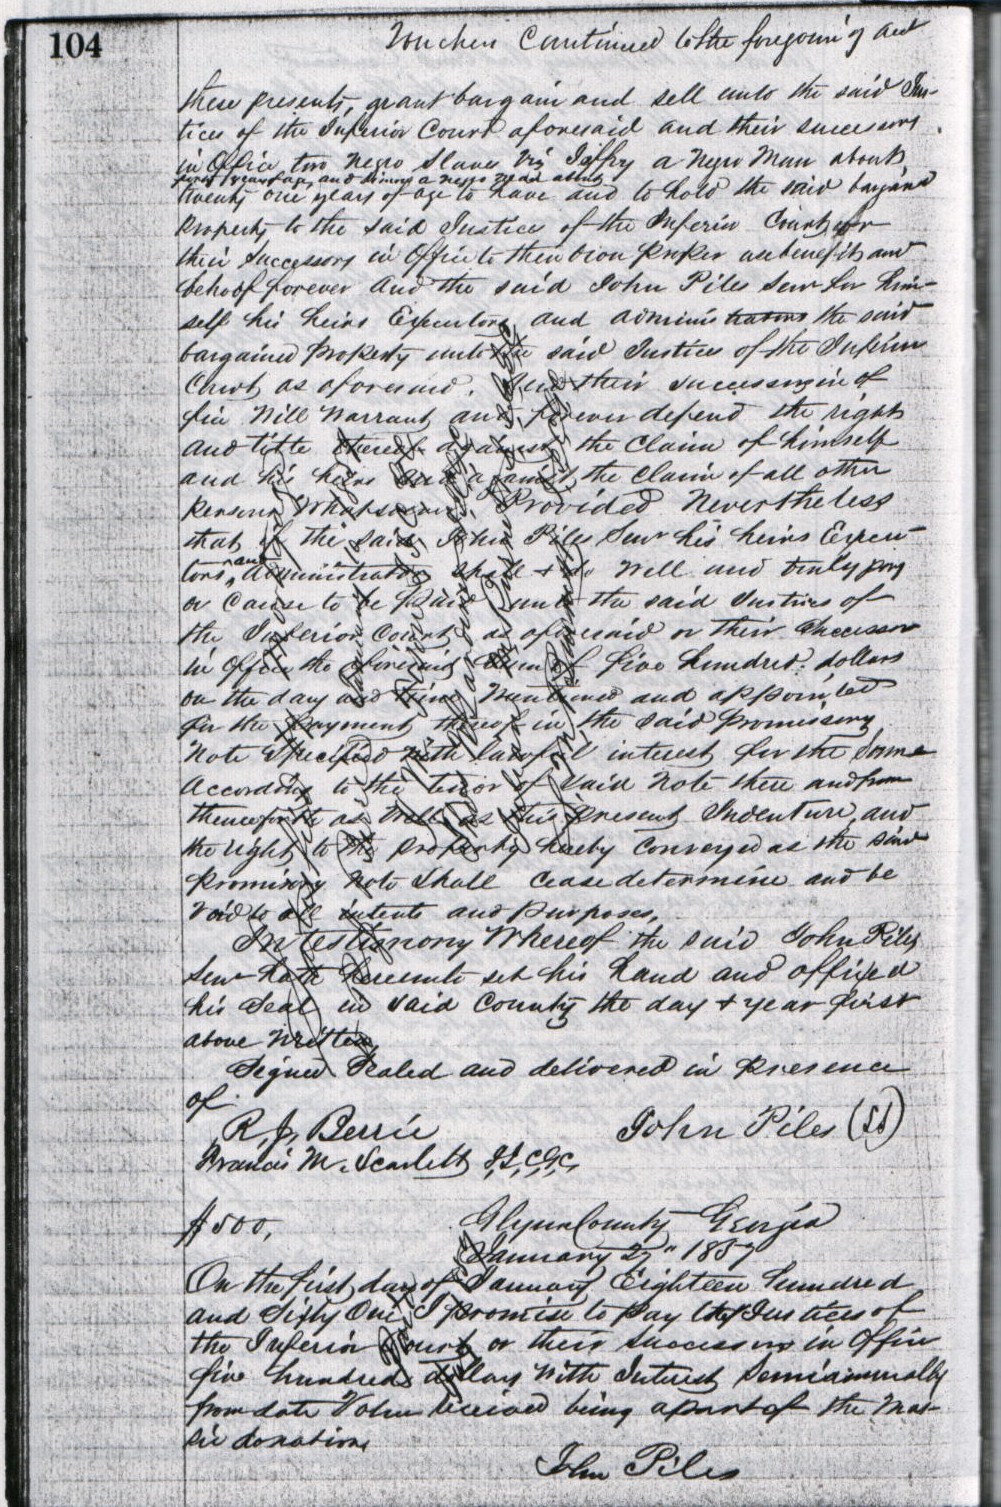 104
Vouchers Continued to the foregoing act
these presents, grant bargain and sell unto the said Jus-
tices of the Inferior Court aforesaid and their successors
in Office two Negro Slaves viz Jeffry a Negro Man about
years of age, and a Negro man about
twenty one years of age to have and to hold the said bargaind
property to the said Justice of the Inferior County or
their Successors in Office to their own proper use benefits and
behoof forever and the said John Piles Senr for him-
self his heirs Executors and administrators the said
bargained property unto the said Justices of the Inferior
Court as aforesaid. and their successors in of
fice Will Warrant and forever defend the right
and title thereof against the Claim of himself
and his heirs and against the Claim of all other
persons Whatsoever Provided Nevertheless
that if the said John Piles Senr his heirs Execu-
tors and Administrators shall & do Well and truly pay
or Cause to be paid unto the said Justices of
the Inferior Court as aforesaid or their Successor
in Office the aforesaid Sum of five hundred dollars
on the day and time Mentioned and appointed
for the payment thereof in the said promissory
Note Specified with lawful interest for the Same
According to the tenor of said Note then and from
thenceforth as Well as this present Indenture, and
the right to the property hereby Conveyed as the said
promissory Note Shall Cease determine and be
Void to all intents and purposes,
In testimony Whereof the said John Piles
Senr hath hereunto set his hand and affixed
his Seal in said County the day & year first
above Written
Signed Sealed and delivered in presence
of
R. J. Berrie John Piles (LS)
Francis M. Scarlett J.I.C.G.C.
$500, Glynn County Georgia
January 27" 1857
On the first day of January Eighteen hundred
and Sixty One I promise to pay the Justices of
the Inferior Court or their Successors in Office
five hundred dollars With Interest Semiannually
from date Value received being a part of the Mas-
sie donation
John Piles